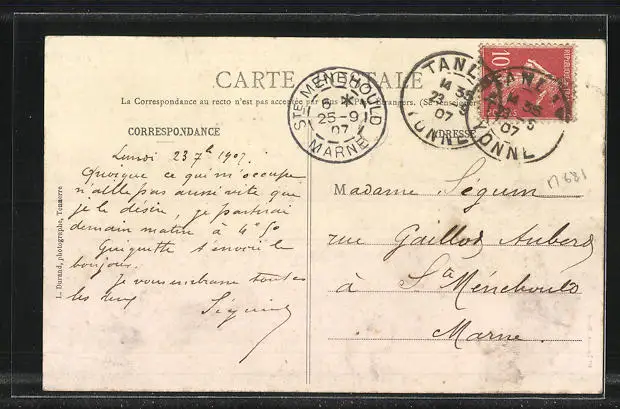 CARTE POSTALE
La Correspondance au recto n'est pas acceptée par tous Pays Étrangers. (Se renseigner
CORRESPONDANCE
ADRESSE
STE MENEHOULD
6 *
25-9
07
MARNE
TANLAY
14 35
07
YONNE
TANLAY
14 35
07
YONNE
10
POSTES
Lundi 23 7b 1907.
Quoique ce qui m'occupe
n'aille pas aussi vite que
je le désire, je partirai
demain matin à 4h 50
Guiguitte t'envoie le
bonjour.
Je vous embrasse toutes
les deux
Séguin
Madame Séguin
rue Gaillot Aubert
à Ste Ménehould
Marne
L. Durand, photographe, Tonnerre